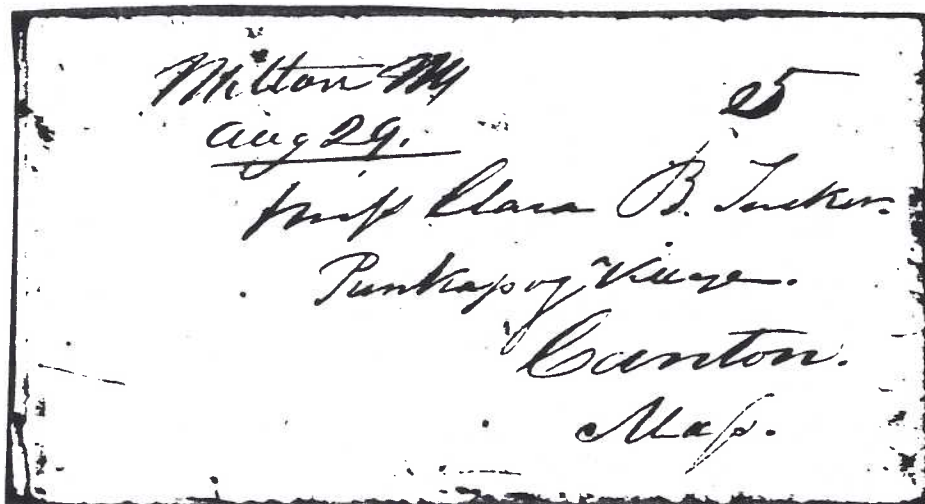 Milton Ms 5
Aug 29.
Miss Clara B. Tucker.
Punkapog Village.
Canton.
Mass.